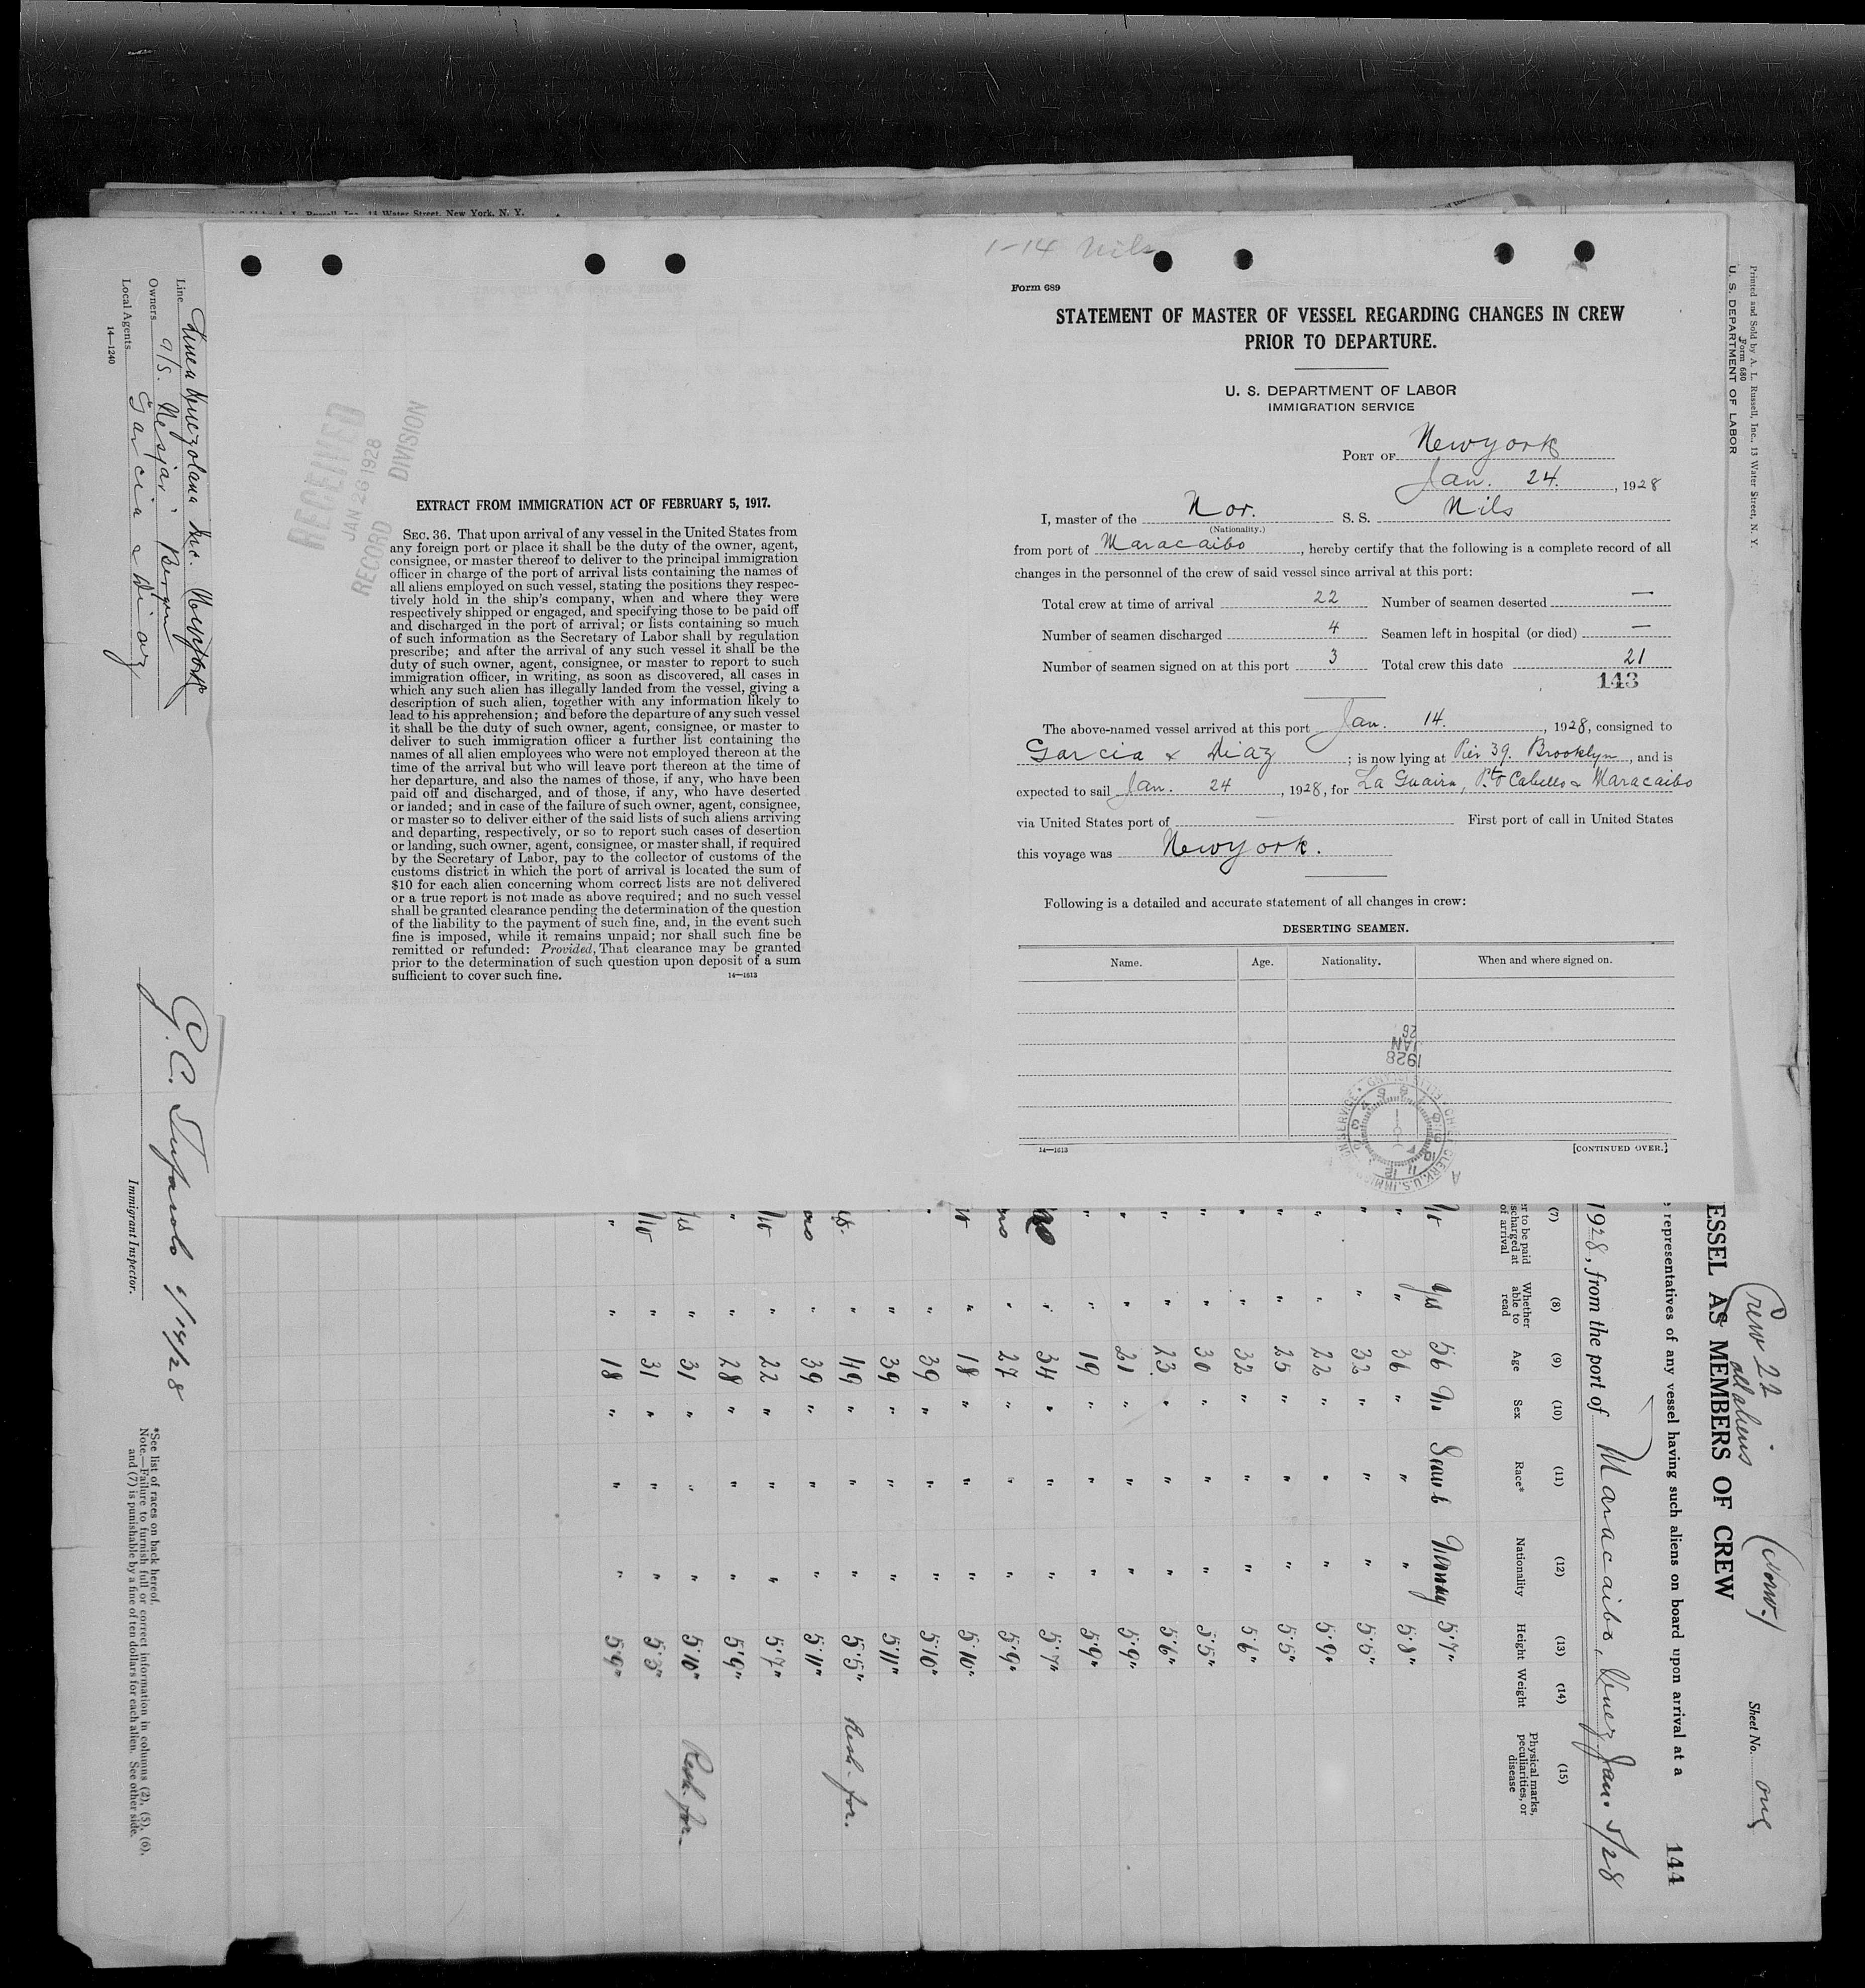 13 Water Street, New York, N. Y.
1-14 Nils
Form 689
STATEMENT OF MASTER OF VESSEL REGARDING CHANGES IN CREW
PRIOR TO DEPARTURE.
U. S. DEPARTMENT OF LABOR
IMMIGRATION SERVICE
PORT OF New york
Jan. 24. , 1928
I, master of the Nor. S. S. Nils
(Nationality.)
from port of Maracaibo , hereby certify that the following is a complete record of all
changes in the personnel of the crew of said vessel since arrival at this port:
Total crew at time of arrival 22 Number of seamen deserted —
Number of seamen discharged 4 Seamen left in hospital (or died) —
Number of seamen signed on at this port 3 Total crew this date 21
143
The above-named vessel arrived at this port Jan. 14. , 1928, consigned to
Garcia & Diaz ; is now lying at Pier 39. Brooklyn , and is
expected to sail Jan. 24 , 1928, for La Guaira, Pto Cabello & Maracaibo
via United States port of — First port of call in United States
this voyage was New york.
Following is a detailed and accurate statement of all changes in crew:
DESERTING SEAMEN.
Name. Age. Nationality. When and where signed on.
1928
JAN
26
14—1613 [CONTINUED OVER.]
RECEIVED
JAN 26 1928
RECORD DIVISION
EXTRACT FROM IMMIGRATION ACT OF FEBRUARY 5, 1917.
SEC. 36. That upon arrival of any vessel in the United States from
any foreign port or place it shall be the duty of the owner, agent,
consignee, or master thereof to deliver to the principal immigration
officer in charge of the port of arrival lists containing the names of
all aliens employed on such vessel, stating the positions they respec-
tively hold in the ship's company, when and where they were
respectively shipped or engaged, and specifying those to be paid off
and discharged in the port of arrival; or lists containing so much
of such information as the Secretary of Labor shall by regulation
prescribe; and after the arrival of any such vessel it shall be the
duty of such owner, agent, consignee, or master to report to such
immigration officer, in writing, as soon as discovered, all cases in
which any such alien has illegally landed from the vessel, giving a
description of such alien, together with any information likely to
lead to his apprehension; and before the departure of any such vessel
it shall be the duty of such owner, agent, consignee, or master to
deliver to such immigration officer a further list containing the
names of all alien employees who were not employed thereon at the
time of the arrival but who will leave port thereon at the time of
her departure, and also the names of those, if any, who have been
paid off and discharged, and of those, if any, who have deserted
or landed; and in case of the failure of such owner, agent, consignee,
or master so to deliver either of the said lists of such aliens arriving
and departing, respectively, or so to report such cases of desertion
or landing, such owner, agent, consignee, or master shall, if required
by the Secretary of Labor, pay to the collector of customs of the
customs district in which the port of arrival is located the sum of
$10 for each alien concerning whom correct lists are not delivered
or a true report is not made as above required; and no such vessel
shall be granted clearance pending the determination of the question
of the liability to the payment of such fine, and, in the event such
fine is imposed, while it remains unpaid; nor shall such fine be
remitted or refunded: Provided, That clearance may be granted
prior to the determination of such question upon deposit of a sum
sufficient to cover such fine. 14—1613
Printed and Sold by A. L. Russell, Inc., 13 Water Street, N. Y.
Form 680
U. S. DEPARTMENT OF LABOR
Crew 22 (Norw.) Sheet No. one
all aliens
ESSEL AS MEMBERS OF CREW
representatives of any vessel having such aliens on board upon arrival at a 144
1928, from the port of Maracaibo, Venez. Jan. 5/28
(7) (8) (9) (10) (11) (12) (13) (14) (15)
er to be paid
scharged at
of arrival
Whether
able to
read
Age Sex Race* Nationality Height Weight
Physical marks,
peculiarities, or
disease
No Yes 56 M Scand Norway 5'7"
" " 36 " " " 5'8"
" " 32 " " " 5'5"
" " 22 " " " 5'9"
" " 25 " " " 5'5"
" " 32 " " " 5'6"
" " 30 " " " 5'5"
" " 23 " " " 5'6"
" " 21 " " " 5'9"
" " 19 " " " 5'9"
no " 34 " " " 5'7"
no " 27 " " " 5'9"
" 18 " " " 5'10"
" " 39 " " " 5'10"
" 39 " " " 5'11"
" 49 " " " 5'5" Resh. for.
no " 39 " " " 5'11"
No " 22 " " " 5'7"
" " 28 " " " 5'9"
Yes " 31 " " " 5'10" Resh. for.
No " 31 " " " 5'5"
" " 18 " " " 5'9"
Line Linea Venezolana Inc. Newyork
Owners a/s. Nesjar. Bergen
Local Agents Garcia & Diaz
14—1240
1/14/28
Immigrant Inspector.
*See list of races on back hereof.
Note.—Failure to furnish full or correct information in columns (2), (5), (6),
and (7) is punishable by a fine of ten dollars for each alien. See other side.